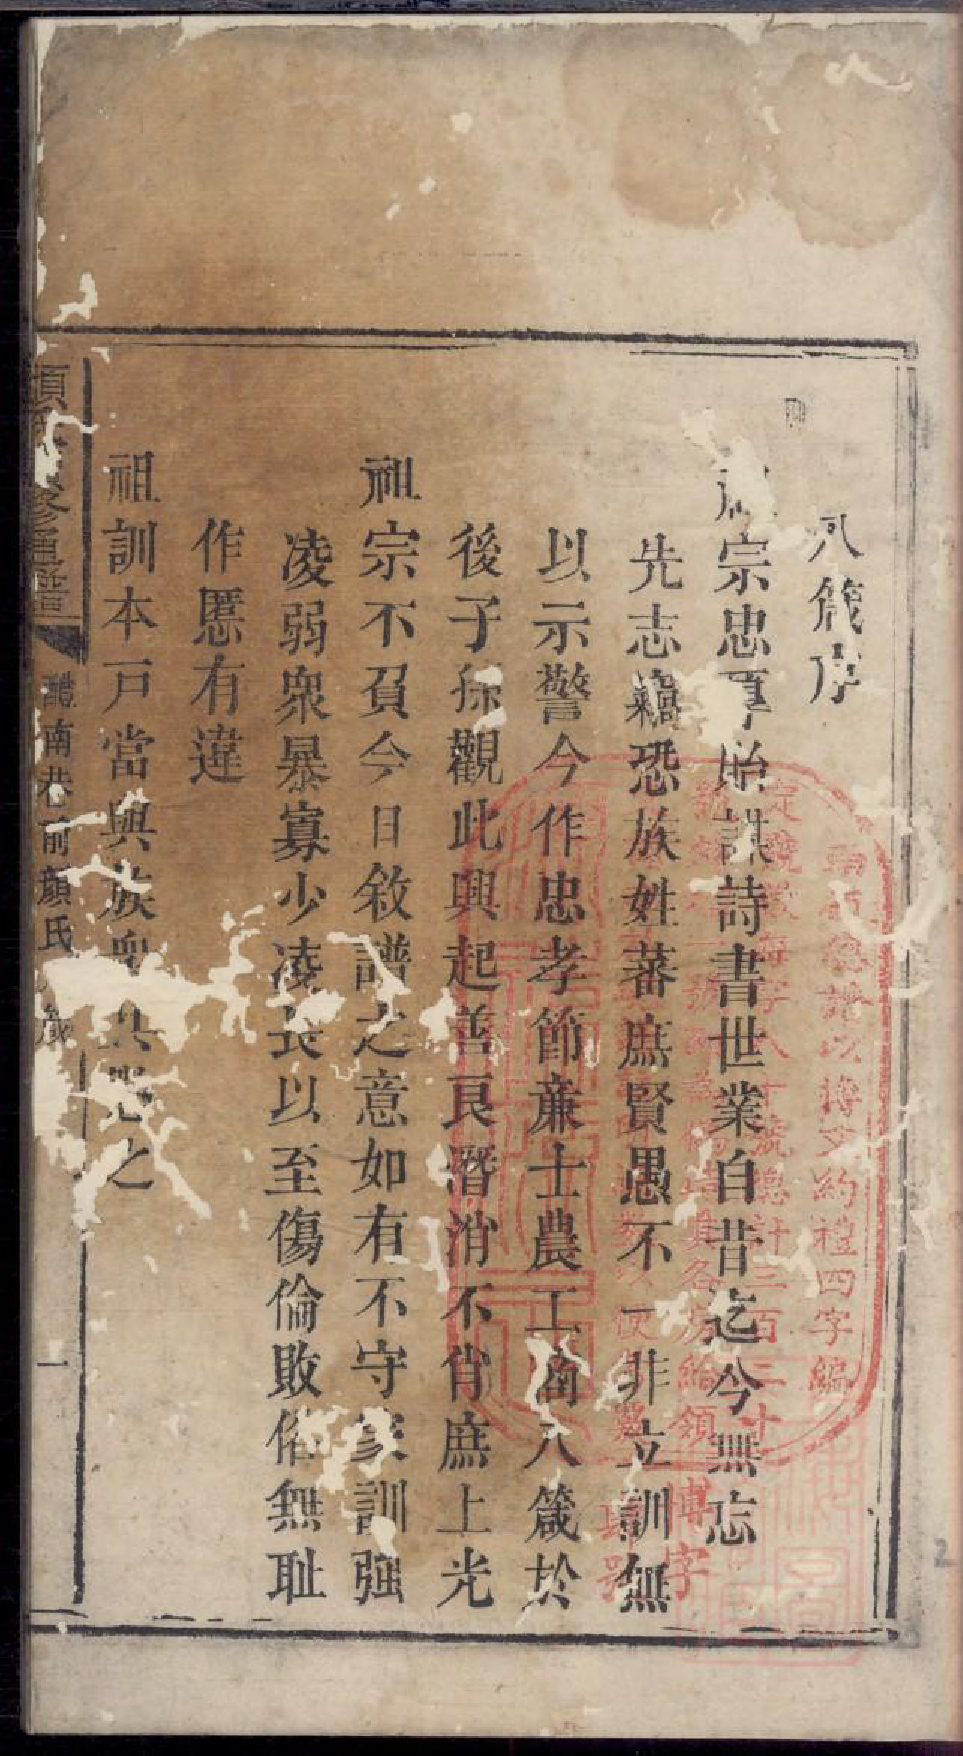 八箴序
祖宗忠厚貽謀詩書世業自昔迄今無忘
先志竊恐族姓蕃庶賢愚不一非立訓無
以示警今作忠孝節亷士農工商八箴於
後子孫觀此興起善良潛消不肖庶上光
祖宗不負今日敘譜之意如有不守家訓强
凌弱衆暴寡少凌長以至傷倫敗俗無耻
作慝有違
祖訓本戸當與族衆共懲之
修通譜
醴南巷前顏氏 箴
一
以博文約禮四字編
字八十號總計三百二十
各房給領
博字